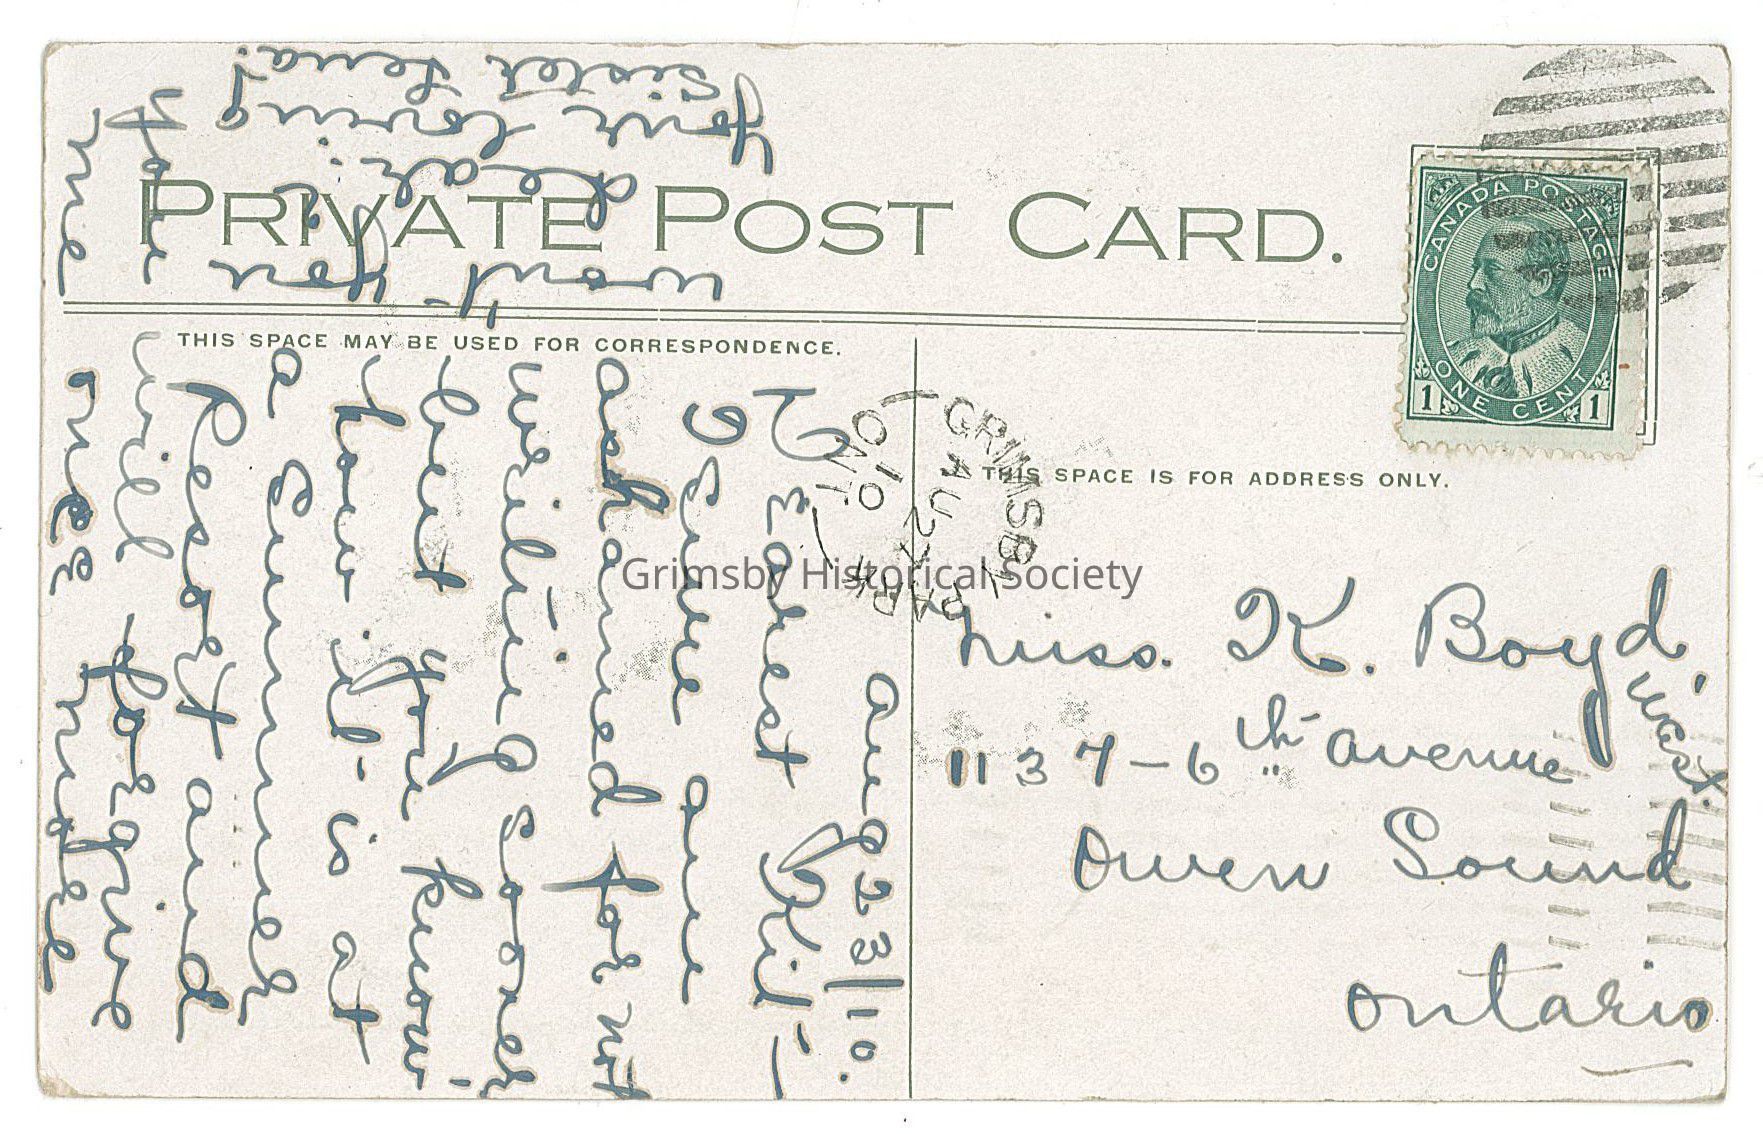 PRIVATE POST CARD.
CANADA POSTAGE
ONE CENT
1 1
THIS SPACE MAY BE USED FOR CORRESPONDENCE.
THIS SPACE IS FOR ADDRESS ONLY.
GRIMSBY PARK
AU 27
10
ONT
Grimsby Historical Society
Miss. K. Boyd.
1137-6th Avenue West.
Owen Sound
Ontario
Aug 23/10.
Dearest
I am
ashamed for not
writing - sooner
but you know
how it is at
a Summer
Resort and
will forgive
me
You
me
won't you
dear.
Your loving
sister Lena!